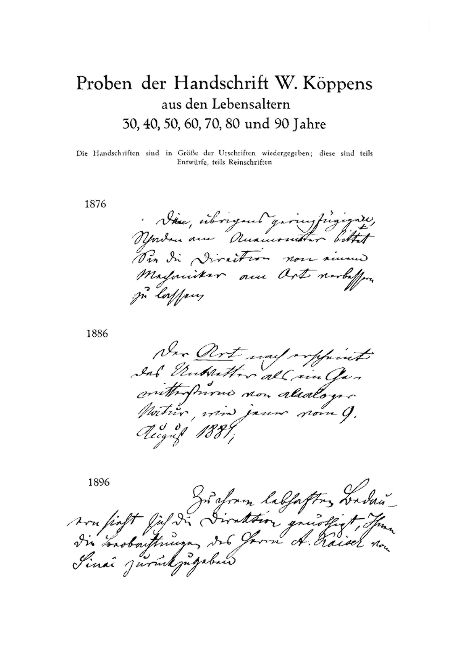 Proben der Handschrift W. Köppens
aus den Lebensaltern
30, 40, 50, 60, 70, 80 und 90 Jahre
Die Handschriften sind in Größe der Urschriften wiedergegeben; diese sind teils
Entwürfe, teils Reinschriften
1876
übrigens geringfügigen,
Schaden am Anemometer bittet
Sie die Direction von einem
Mechaniker am Ort verbessern
zu lassen,
1886
Der Art nach erscheint
das Unwetter als ein Ge-
wittersturm von analoger
Natur, wie jener vom 9.
August 1881,
1896
Zu ihrem lebhaften Bedau-
ern sieht sich die Direktion genötigt, Ihnen
die Beobachtungen des Herrn A. Kaiser von
Sinai zurückzugeben